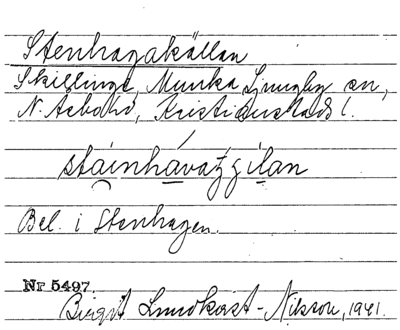 Stenhagakällan
Skillinge, Munka Ljungby sn,
N. Åsbo hd, Kristianstads l.
stáinhávaʒgilan
Bel. i Stenhagen.
Nr 5497.
Birgit Lundkvist-Nilsson, 1941.